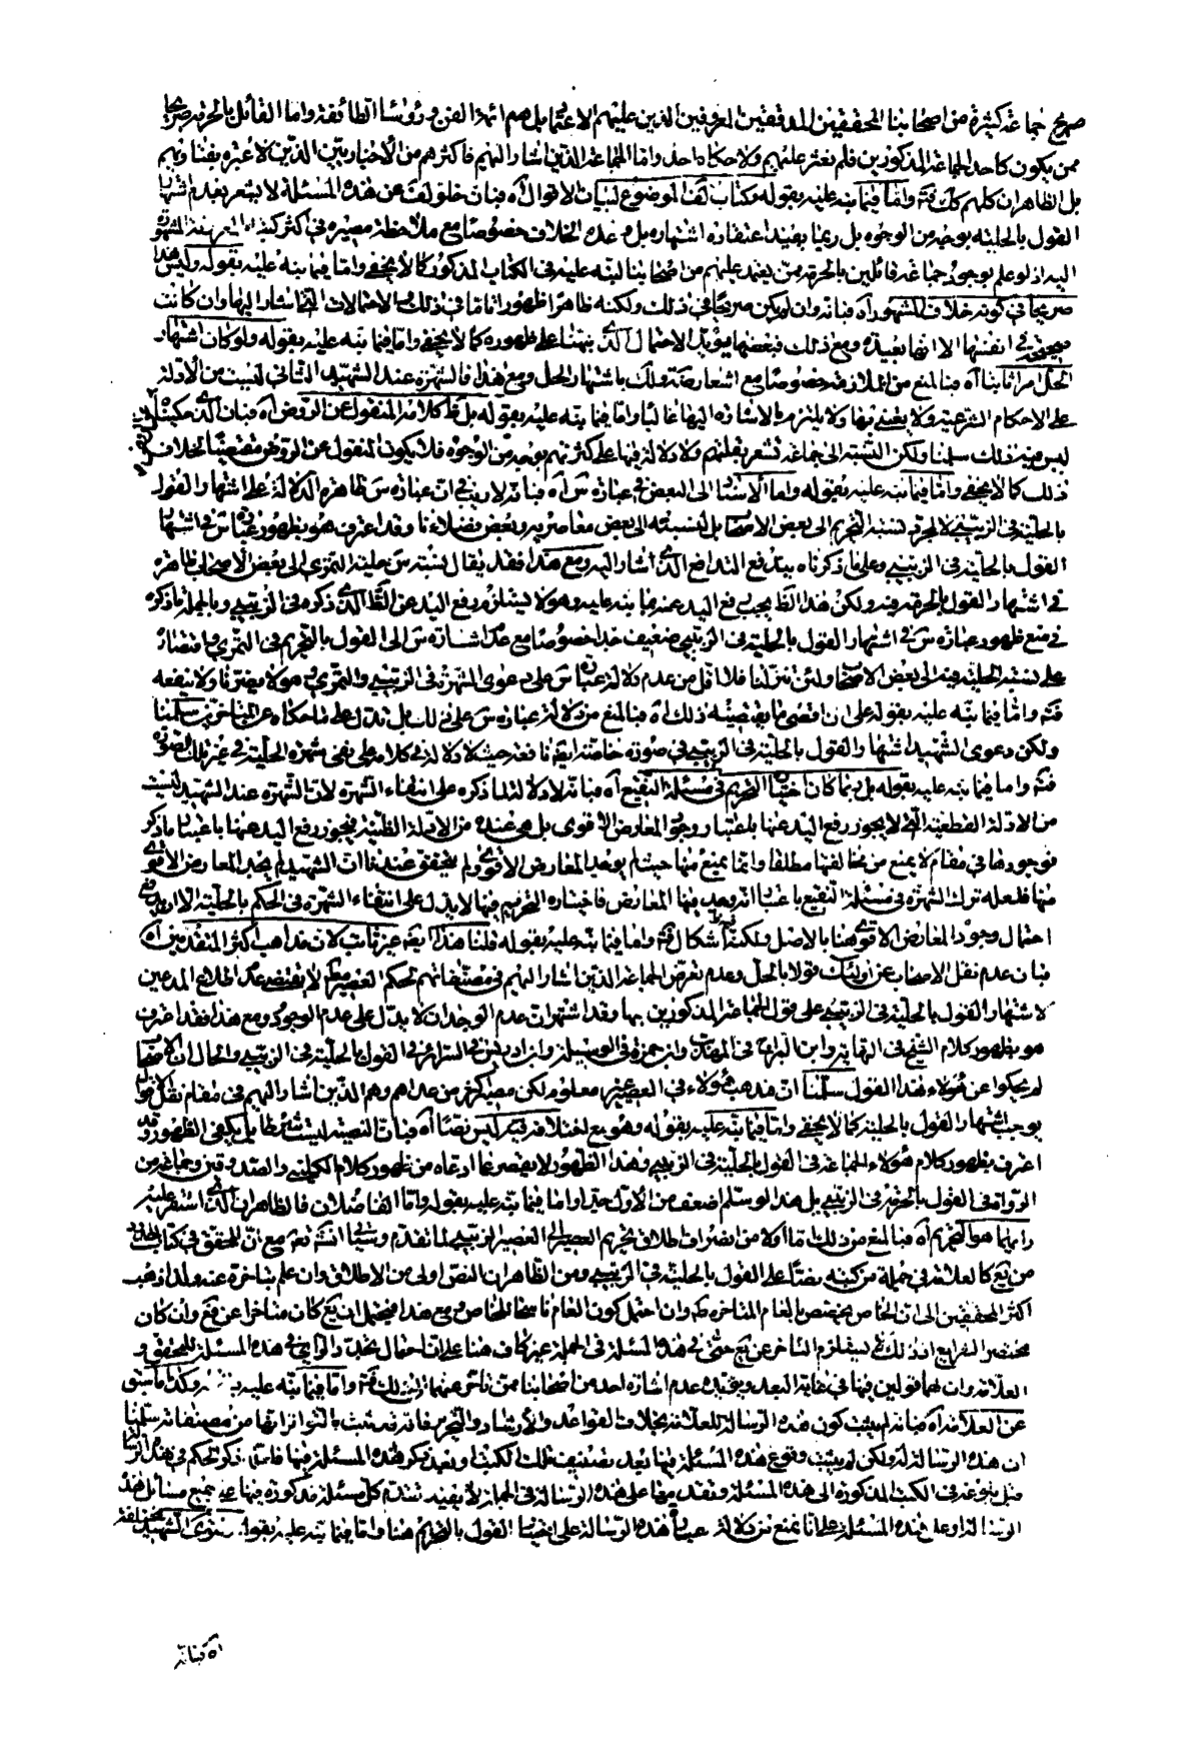 صريح جماعة كثيرة من اصحابنا المحققين المدققين المعروفين الذين عليهم الاعتماد بل هم ائمة الفن ورؤساء الطائفة واما القائل بالحرمة صريحا
ممن يكون كاحد الجماعة المذكورين فلم نعثر عليهم ولا حكاه احد واما الجماعة الذين اشار اليهم فاكثرهم من الأخباريين الذين لا عبرة بفتاويهم
بل الظاهر ان كلهم كك فتم واما فيما نبه عليه بقوله وكتاب لف الموضوع لبيان الاقوال اه فبان خلو لف عن هذه المسئلة لا يشعر بعدم اشتهار
القول بالحلية بوجه من الوجوه بل ربما يفيد اعتقاده اشتهاره بل وعدم الخلاف خصوصا مع ملاحظة مصيره في اكثر كتبه
اليه اذ لو علم بوجود جماعة قائلين بالحرمة ممن يعتمد عليهم من اصحابنا لنبه عليه في الكتاب المذكور كما لا يخفى واما فيما نبه عليه بقوله وليس هذا
صريحا في كونه خلاف المشهور اه فبانه وان لم يكن صريحا في ذلك ولكنه ظاهر ظهورا تاما في ذلك والاحتمالات التي اشار اليها وان كانت
في انفسها الا انها بعيدة ومع ذلك فبعضها يؤيد الاحتمال الذي نبهنا على ظهوره كما لا يخفى واما فيما نبه عليه بقوله ولو كان اشتهار
الحل مراتبا اه فبالمنع من الملازمة خصوصا مع اشعار عبارة ذلك باشتهار الحل ومع هذا فالشهرة عند الشهيد الثاني ليست من الأدلة
على الاحكام الشرعية ولا يعتنى بها ولا يلتزم بالاشارة اليها غالبا واما فيما نبه عليه بقوله بل كلامه المنقول عن الروض اه فبان الذي حكيته
ليس عينه فذلك سلمنا ولكن النسبة الى جماعة تشعر بقلتهم ولا دلالة فيها على كثرتهم بوجه من الوجوه فلا يكون المنقول عن الروض مقتضيا لخلاف
ذلك كما لا يخفى واما فيما نبه عليه بقوله واما الاستناد الى البعض في عبارة س اه فبانه لا ريب في ان عبارة س ظاهرة الدلالة على اشتهار القول
بالحلية في الزبيبي لا الحرمة لنسبة التحريم الى بعض الاصحاب بل لنسبته الى بعض معاصريه وبعض فضلاءنا وقد اعترف هو بظهور عبارة س في اشتهار
القول بالحلية في الزبيبي وعلى ما ذكرناه يندفع التدافع الذي اشار اليه ومع هذا فقد يقال نسبة س حلية التمري الى بعض الاصحاب ظاهرة
في اشتهار القول بالحرمة فيه ولكن هذا الظ يجب رفع اليد عنه بما نبه عليه وهو لا يستلزم رفع اليد عن الظ الذي ذكره في الزبيبي وبالجملة ما ذكره
في منع ظهور عبارة س في اشتهار القول بالحلية في الزبيبي ضعيف جدا خصوصا مع عدم اشارة س الى القول بالتحريم في التمري واقتصاره
على نسبة الحلية فيه الى بعض الاصحاب ولئن تنزلنا فلا اقل من عدم دلالة عبارة س على دعوى الشهرة في الزبيبي والتمري وهو لا يضرنا ولا ينفعه
فتم واما فيما نبه عليه بقوله على ان اقصى ما يقتضيه ذلك اه فبالمنع من دلالة عبارة س على ذلك بل تدل على ما حكاه عن المتاخرين سلمنا
ولكن دعوى الشهيد اشتهار القول بالحلية في الزبيبي في صورة خاصة ايضا نافعة حيث لا دلالة في كلامه على نفي شهرة الحلية في غير تلك الصورة
فتم واما فيما نبه عليه بقوله بل ربما كان اختيار التحريم في مسئلة النقيع اه فبانه لا دلالة لما ذكره على انتفاء الشهرة لان الشهرة عند الشهيد ليست
من الادلة القطعية التي لا يجوز رفع اليد عنها باعتبار وجود المعارض الاقوى بل هي عنده من الادلة الظنية فيجوز رفع اليد عنها باعتبار ما ذكر
فوجودها في مقام لا يمنع من مخالفتها مطلقا وانما يمنع منها حيث لم يوجد المعارض الاقوى ولم يتحقق عندنا ان الشهيد لم يجد المعارض الاقوى
منها فلعله ترك الشهرة في مسئلة النقيع باعتبار انه وجد فيها المعارض فاختياره التحريم فيها لا يدل على انتفاء الشهرة في الحكم بالحلية الا ان يدفع
احتمال وجود المعارض الاقوى هنا بالاصل ولكنه اشكال فتم واما فيما نبه عليه بقوله قلنا هذا ايضا غير ثابت لان مذاهب اكثر المتقدمين اه
فبان عدم نقل الاصحاب عن اولئك قولا بالحل وعدم تعرض الجماعة الذين اشار اليهم في مصنفاتهم لحكم العصير لا يقتضى عدم اطلاع المدعين
لاشتهار القول بالحلية في الزبيبي على قول الجماعة المذكورين بها وقد اشتهر ان عدم الوجدان لا يدل على عدم الوجود ومع هذا فقد اعترف
هو بظهور كلام الشيخ في النهاية وابن البراج في المهذب وابن حمزة في الوسيلة وابن ادريس في السرائر في القول بالحلية في الزبيبي والحال ان الاصحاب
لم يحكوا عن هؤلاء هذا القول سلمنا ان مذهب هؤلاء في العصير غير معلوم لكن مصير اكثر من عداهم وهم الذين اشار اليهم في مقام نقل الاقوال
يوجب اشتهار القول بالحلية كما لا يخفى واما فيما نبه عليه بقوله وهو يع لعلامة فيه ليس نصا اه فبان النصية ليست شرطا بل يكفي الظهور وقد
اعترف بظهور كلام هؤلاء الجماعة في القول بالحلية في الزبيبي وهذا الظهور لا يقصر عما ادعاه من ظهور كلام الكليني والصدوقين وجماعة من
الرواة في القول بالحرمة في الزبيبي بل هذا لو سلم اضعف من الاول جدا واما فيما نبه عليه بقوله واما الفاضلان فالظاهر ان الذي استقر عليه
رايهما هو التحريم اه فبالمنع من ذلك اما أولا من انصراف اطلاق تحريم العصير الى العصير الزبيبي لما تقدم وسيأتي انشاء الله تعالى مع ان للمحقق في كتاب الحدود
من يع كالعلامة في جملة من كتبه نصا على القول بالحلية في الزبيبي ومن الظاهر ان النص اولى من الاطلاق وان علم تاخره عنه ولذا ذهب
اكثر المحققين الى ان الخاص يخصص بالعام المتاخر وان احتمل كون العام ناسخا للخاص ومع هذا فيحتمل ان يع كان متاخرا عن فع وان كان
مختصر الشرايع اذ ذلك لا يستلزم التاخر عن يع حتى في هذه المسئلة في الجملة غير كاف هنا على ان احتمال تجدد الراي في هذه المسئلة للمحقق و
العلامة وان لهما قولين فيها في غاية البعد ويؤيده عدم اشارة احد من اصحابنا ممن تأخر عنهما الى ذلك فتم واما فيما نبه عليه بقوله وكذا ما سبق
عن العلامة اه فبانه لم يثبت كون هذه الرسالة للعلامة بخلاف القواعد والأرشاد والتحرير فانه قد ثبت بالتواتر انها من مصنفاته سلمنا
ان هذه الرسالة له ولكن لم يثبت وقوع هذه المسئلة فيها بعد تصنيف تلك الكتب وبعد ذكر هذه المسئلة فيها فلعله ذكر الحكم في هذه الرسالة
قبل بلوغه في الكتب المذكورة الى هذه المسئلة وتقديمها على هذه الرسالة في الجملة لا يفيد تقدم كل مسئلة مذكورة فيها على جميع مسائل هذه
الرسالة او على هذه المسئلة على انا نمنع من دلالة عبارة هذه الرسالة على اختيار القول بالتحريم هنا واما فيما نبه عليه بقوله دعوى الشهيد
اه فبانه